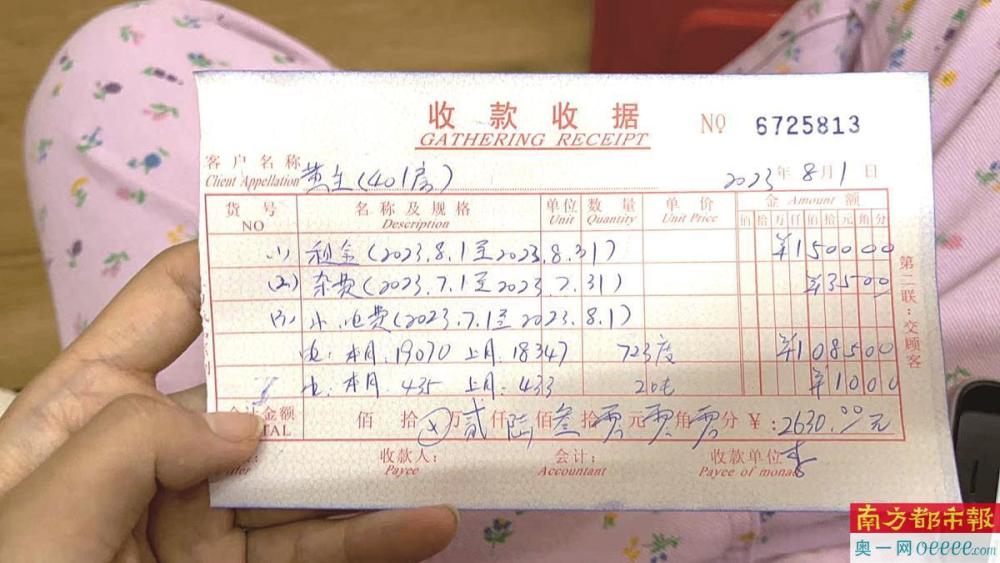 收款收据
GATHERING RECEIPT
NO 6725813
客户名称
Client Appellation
黄生(401房)
2023年8月1日
货号 名称及规格 单位 数量 单价 金 Amount 额
NO Description Unit Quantity Unit Price 佰拾万仟佰拾元角分
(1) 租金(2023.8.1至2023.8.31) ¥150000
(2) 杂费(2023.7.1至2023.7.31) ¥3500
(3) 水电费(2023.7.1至2023.8.1)
电:本月.19070 上月.18347 723度 ¥108500
本月.435 上月:433 2吨 ¥1000
合计金额 佰 拾 万贰仟陆佰叁拾零元零角零分 ¥:2630.00元
TAL
收款人: 会计: 收款单位
Payee Accountant Payee of mona
第二联:交顾客
南方都市報
奥一网oeeee.com